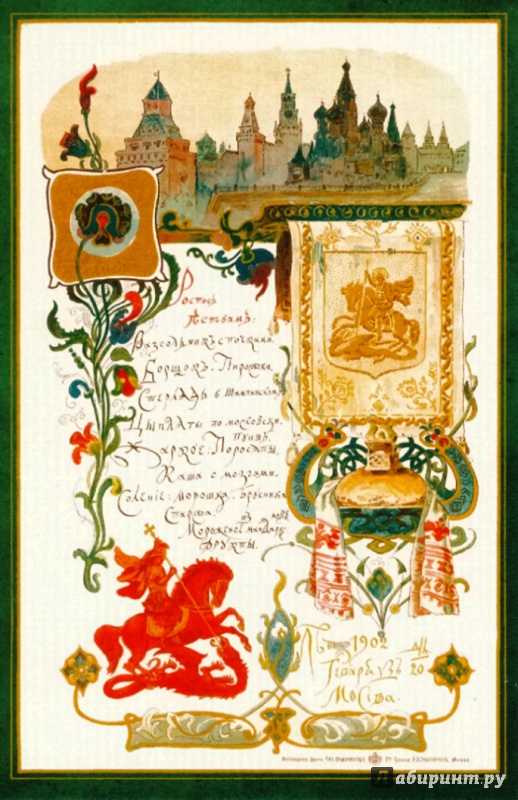 Роспись
ѣствамъ:
Разсольникъ с почками
Борщокъ. Пирожки.
Стерлядь в Шампанскомъ
Цыплаты по московски.
Пуншъ.
Жаркое: Поросяты.
Каша с мозгами.
Соленiе: морошка, брусника
Спаржа.
Мороженое из мандарин
Фрукты.
Лѣто 1902
20
Москва.
Лабиринт.ру